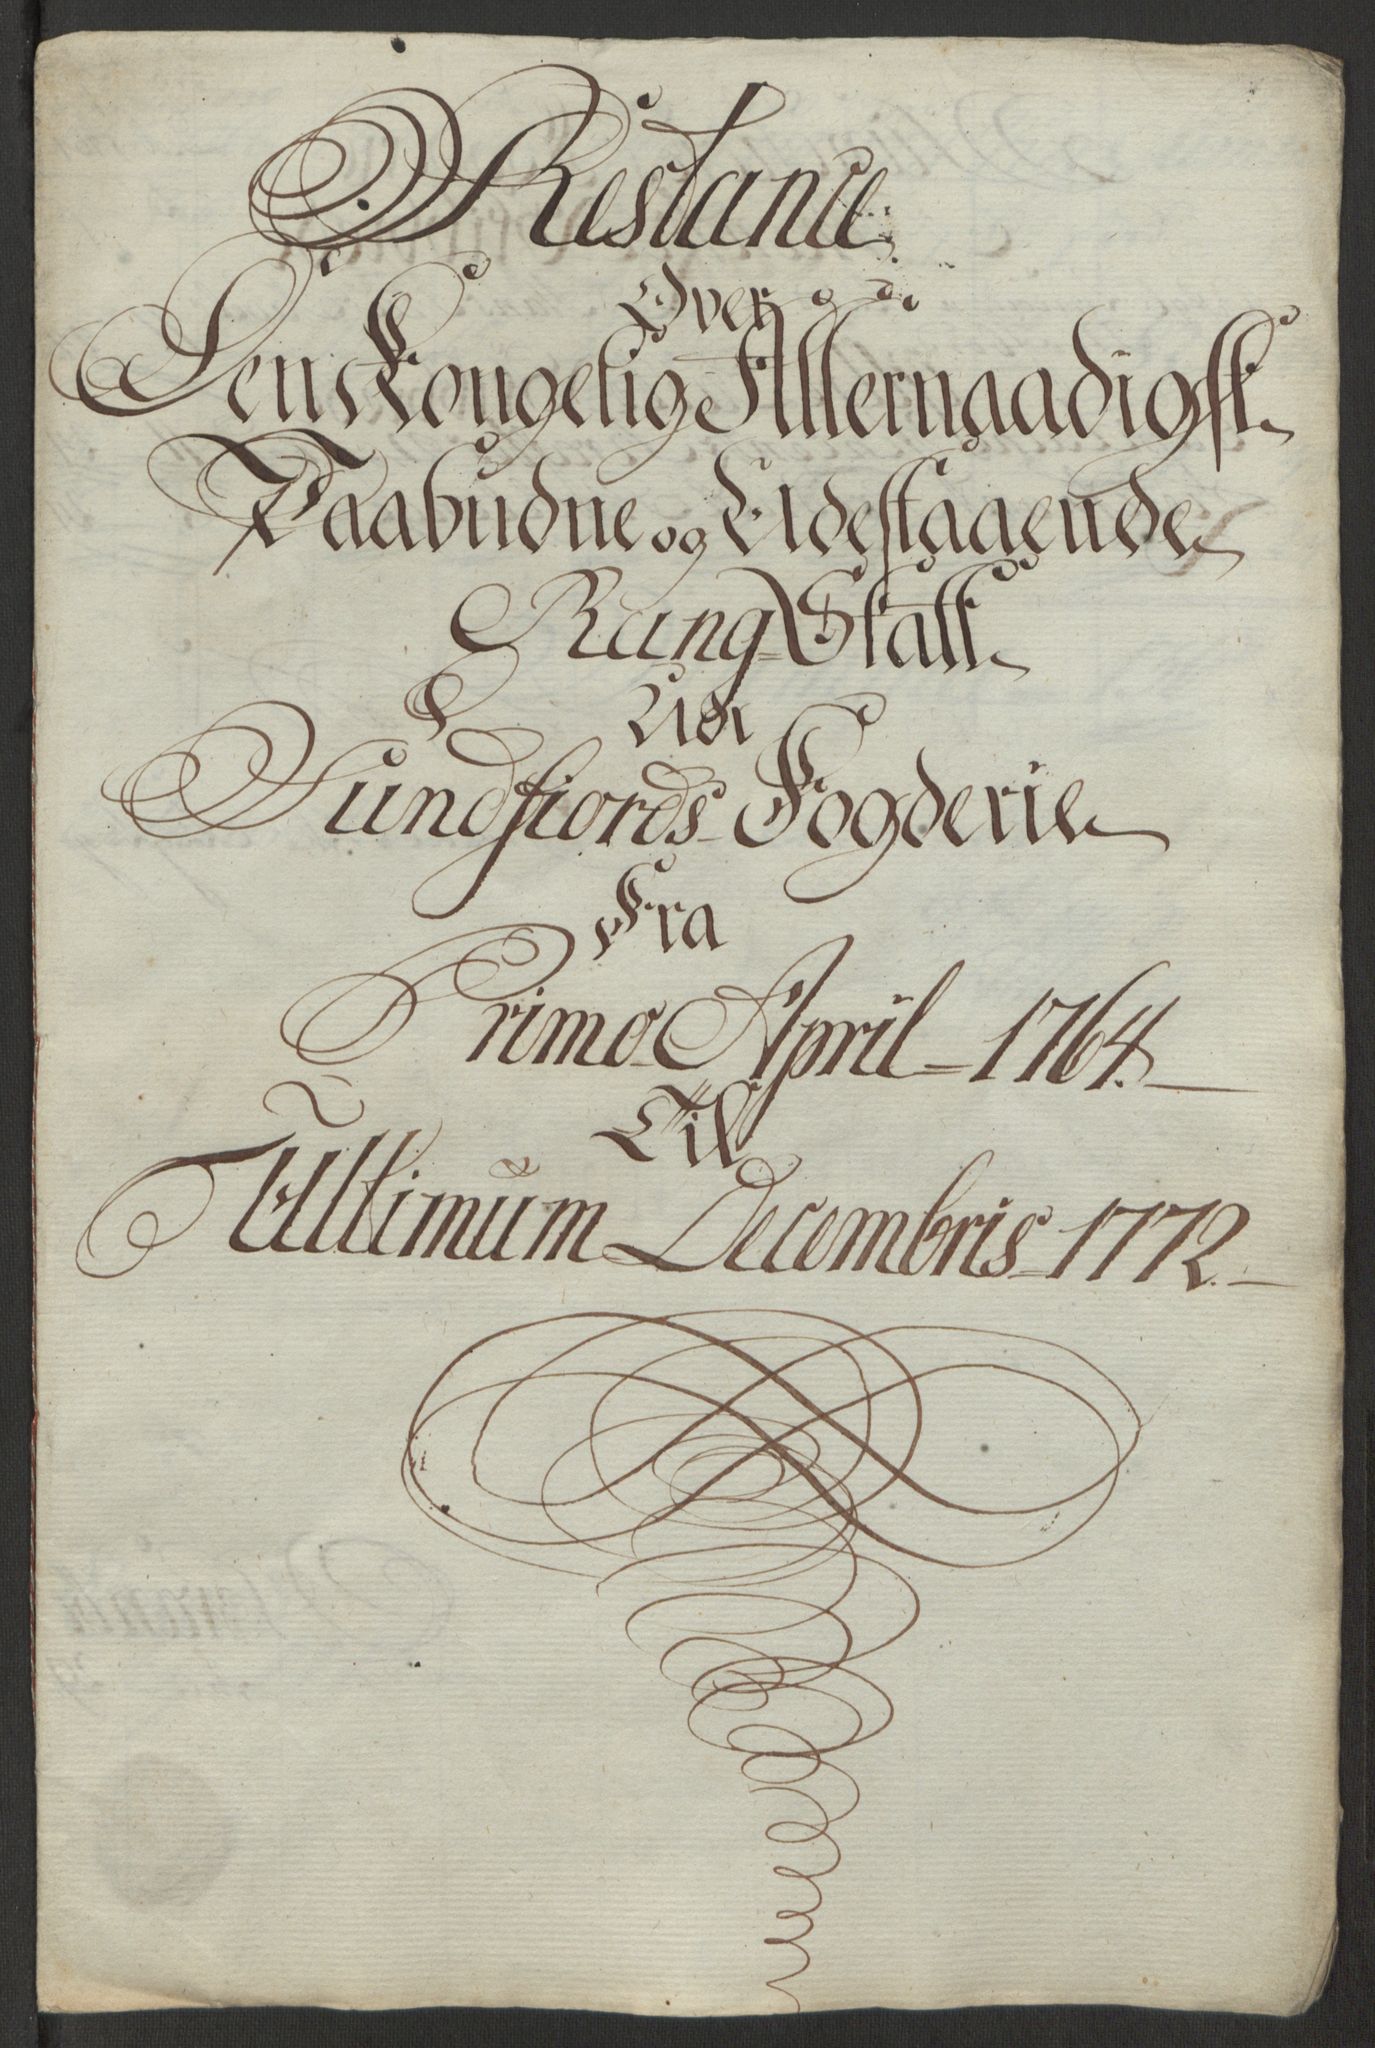 Restance
Over
Den Kongelig Allernaadigst
Paabudne og Udestaaende
Rang-Skatt
Udi
Sundfiords Fogderie
Fra
Primo April 1764.
Til
Ultimum Decembris 1772.